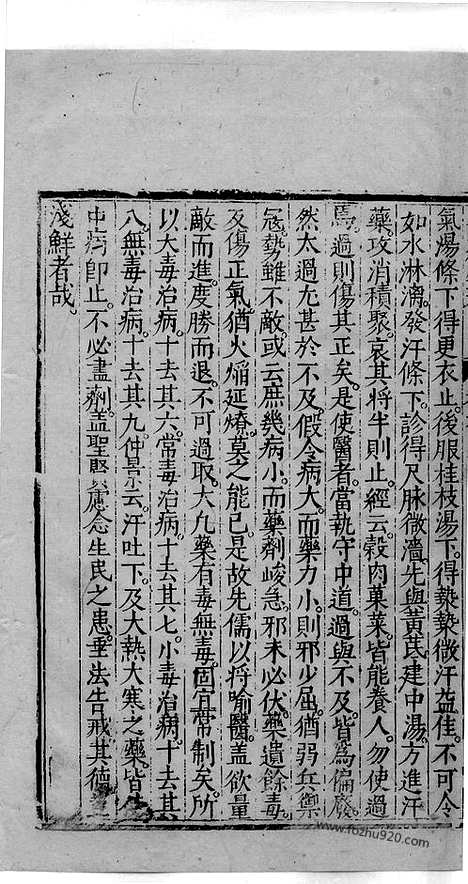 氣湯條下得更衣止。後服桂枝湯下。得漐漐微汗益佳。不可令
如水淋漓。發汗條下。診得尺脉微濇。先與黃茋建中湯。方進汗
藥。攻消積聚。衰其將半則止。經云。穀肉菓菜。皆能養人。勿使過
焉。過則傷其正矣。是使醫者。當執守中道。過與不及。皆為偏廢。
然太過尤甚於不及。假令病大。而藥力小。則邪少屈。猶弱兵禦
冦。勢雖不敵。或云庶幾病小。而藥劑峻急。邪未必伏。藥遺餘毒。
反傷正氣。猶火熖延燎。莫之能已。是故先儒以將喻醫。蓋欲量
敵而進。度勝而退。不可過取。大凡藥有毒無毒。固宜常制矣。所
以大毒治病。十去其六。常毒治病。十去其七。小毒治病。十去其
八。無毒治病。十去其九。仲景云。汗吐下。及大熱大寒之藥。皆
中病即止。不必盡劑。蓋聖賢憂念生民之患。垂法告戒。其德
淺鮮者哉。
www.fozhu920.com